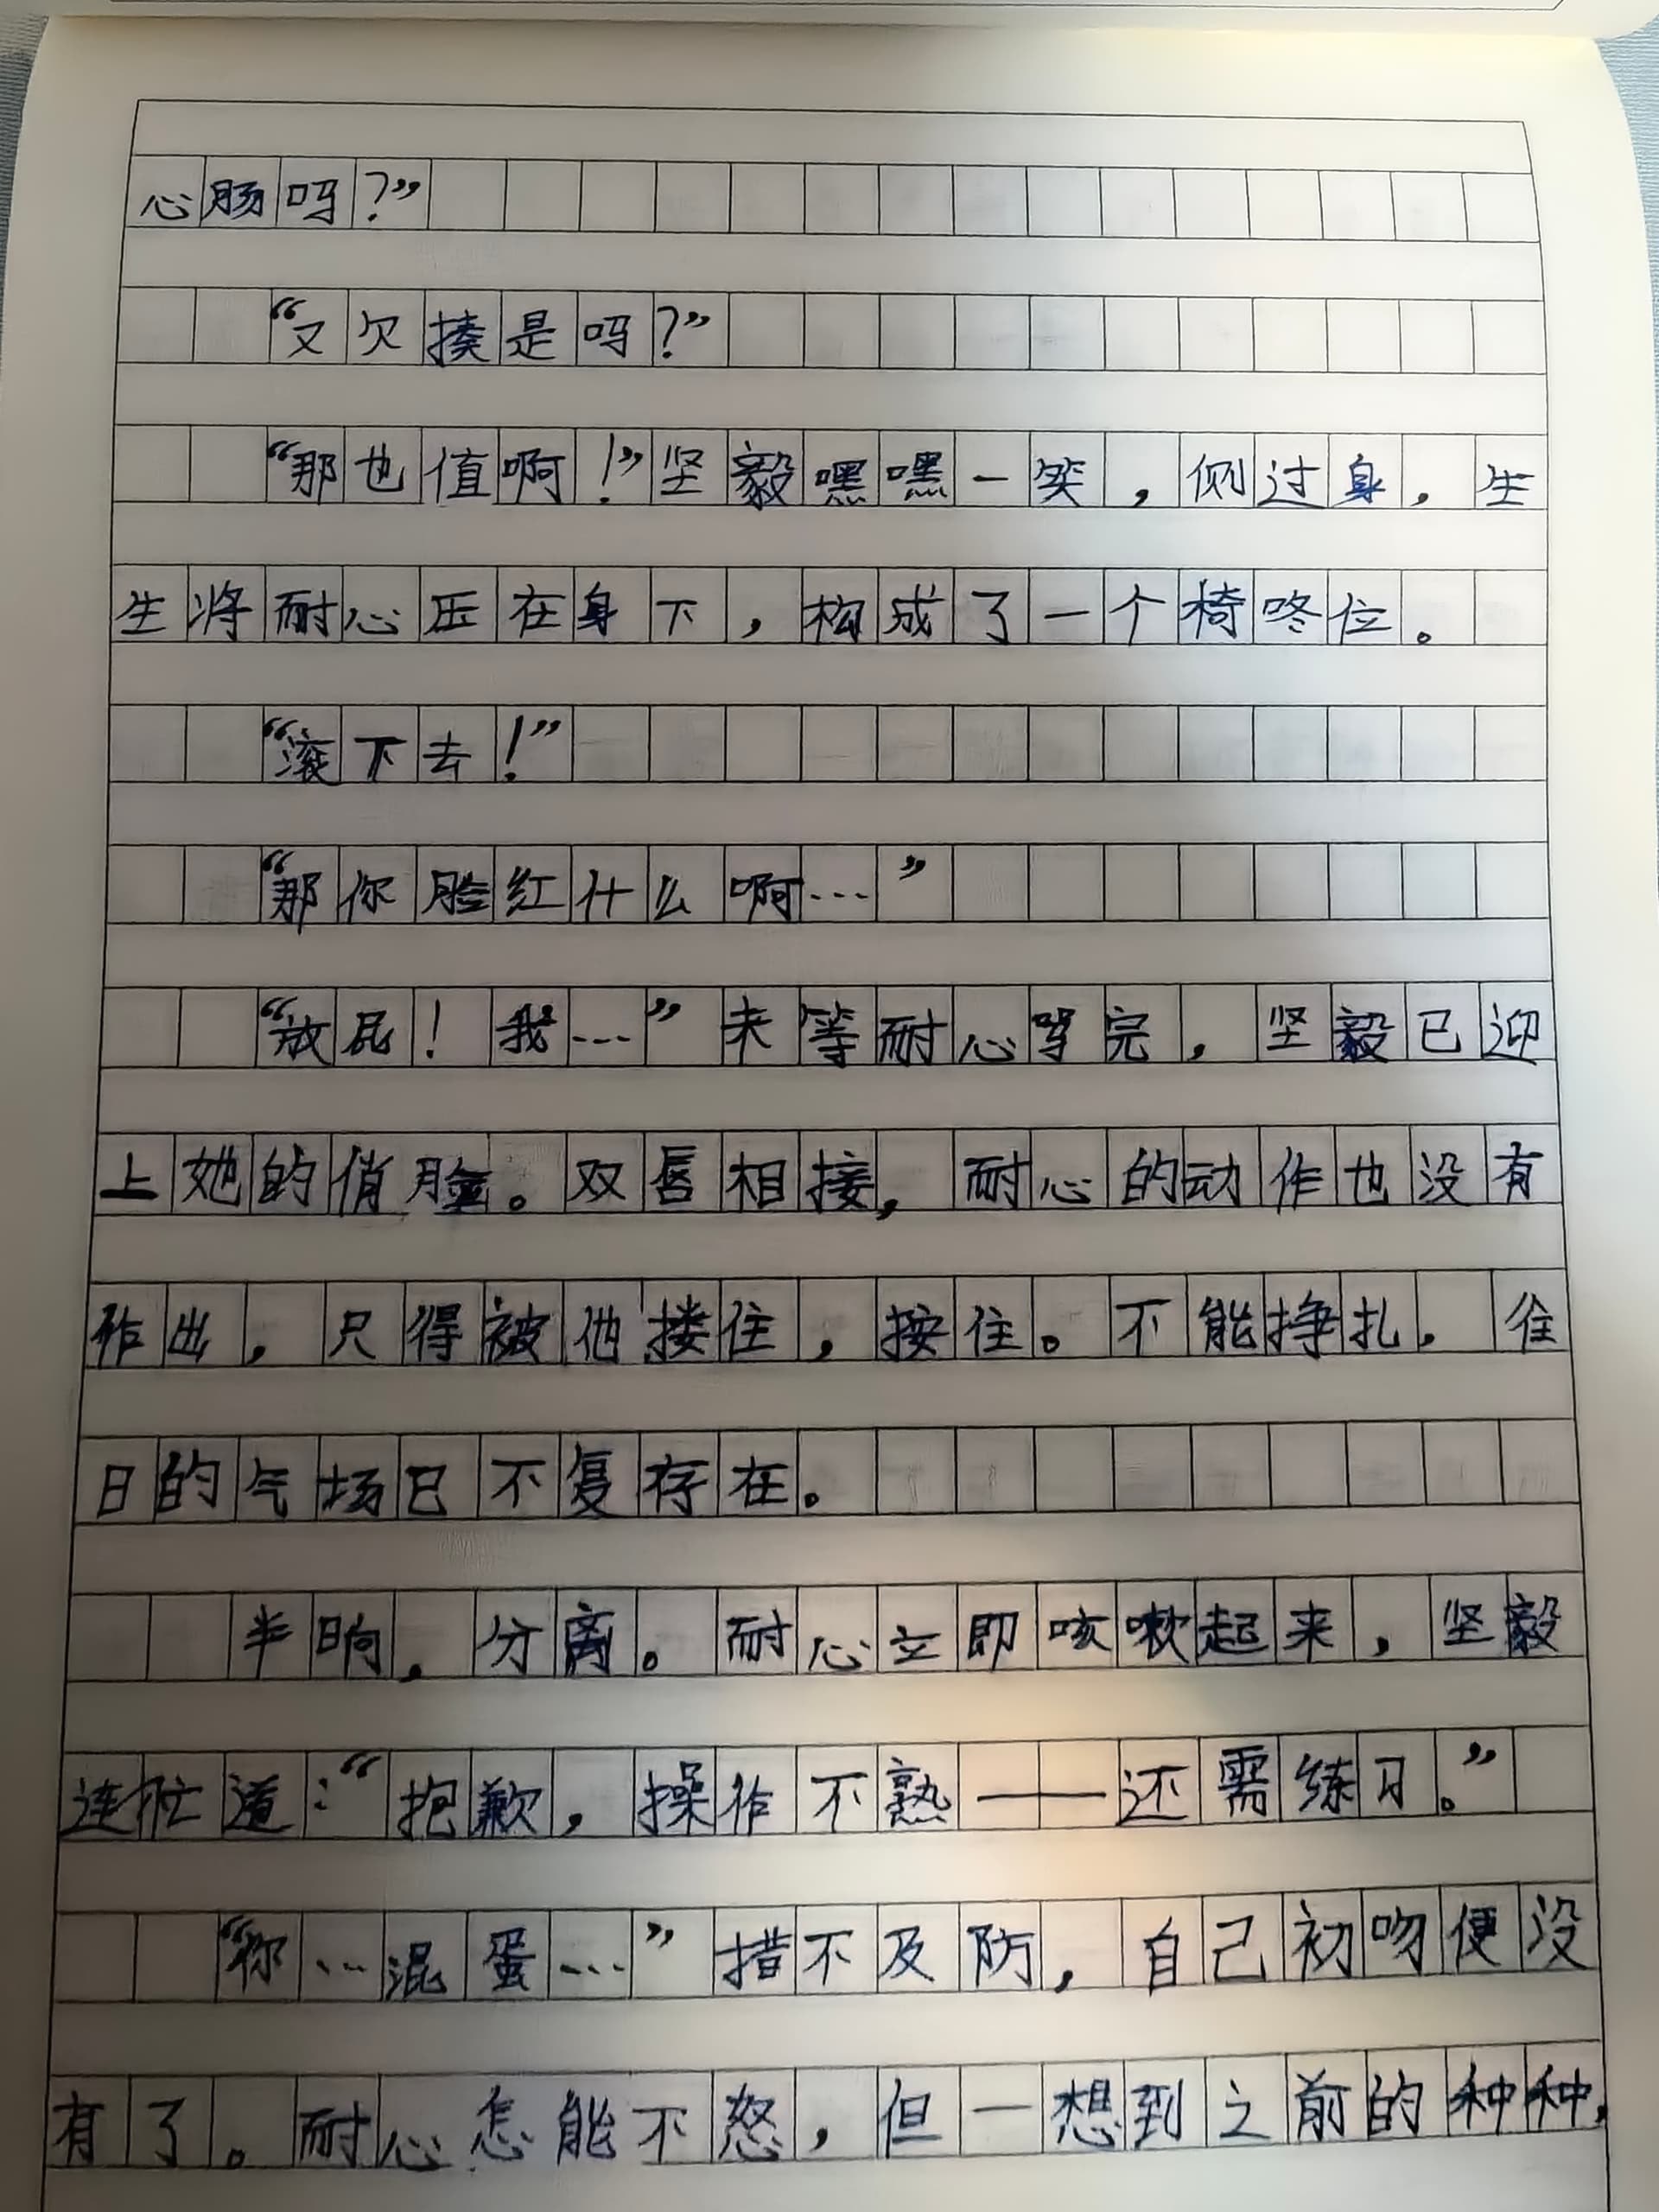 心肠吗？”
“又欠揍是吗？”
“那也值啊！”坚毅嘿嘿一笑，侧过身，生
生将耐心压在身下，构成了一个椅咚位。
“滚下去！”
“那你脸红什么啊…”
“放屁！我…”未等耐心骂完，坚毅已迎
上她的俏脸。双唇相接，耐心的动作也没有
作出，只得被他搂住，按住。不能挣扎。往
日的气场已不复存在。
半晌，分离。耐心立即咳嗽起来，坚毅
连忙道：“抱歉，操作不熟——还需练习。”
“你…混蛋…”措不及防，自己初吻便没
有了。耐心怎能不怒，但一想到之前的种种，